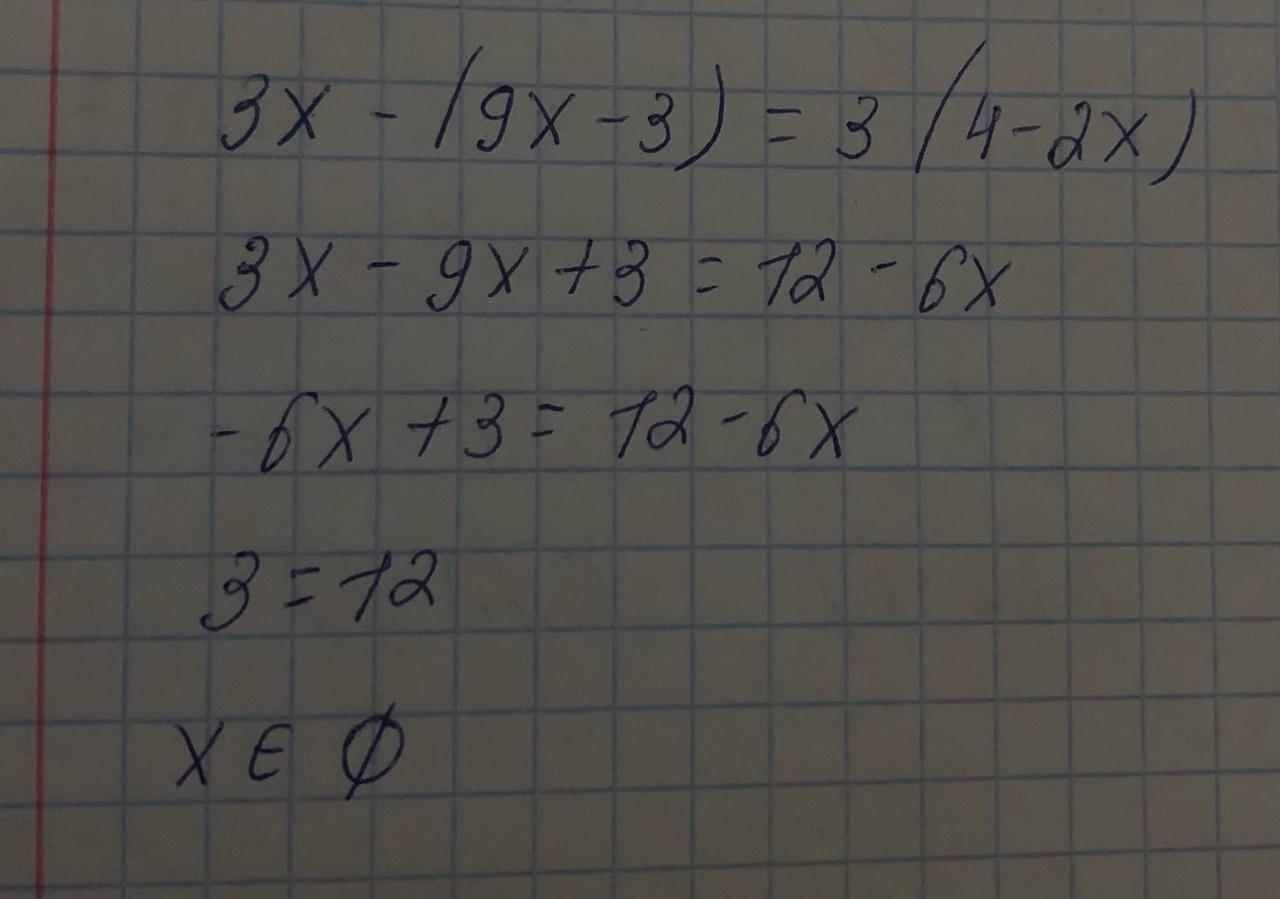 3x - (9x - 3) = 3 (4 - 2x)
3x - 9x + 3 = 12 - 6x
-6x + 3 = 12 - 6x
3 = 12
x ∈ ∅